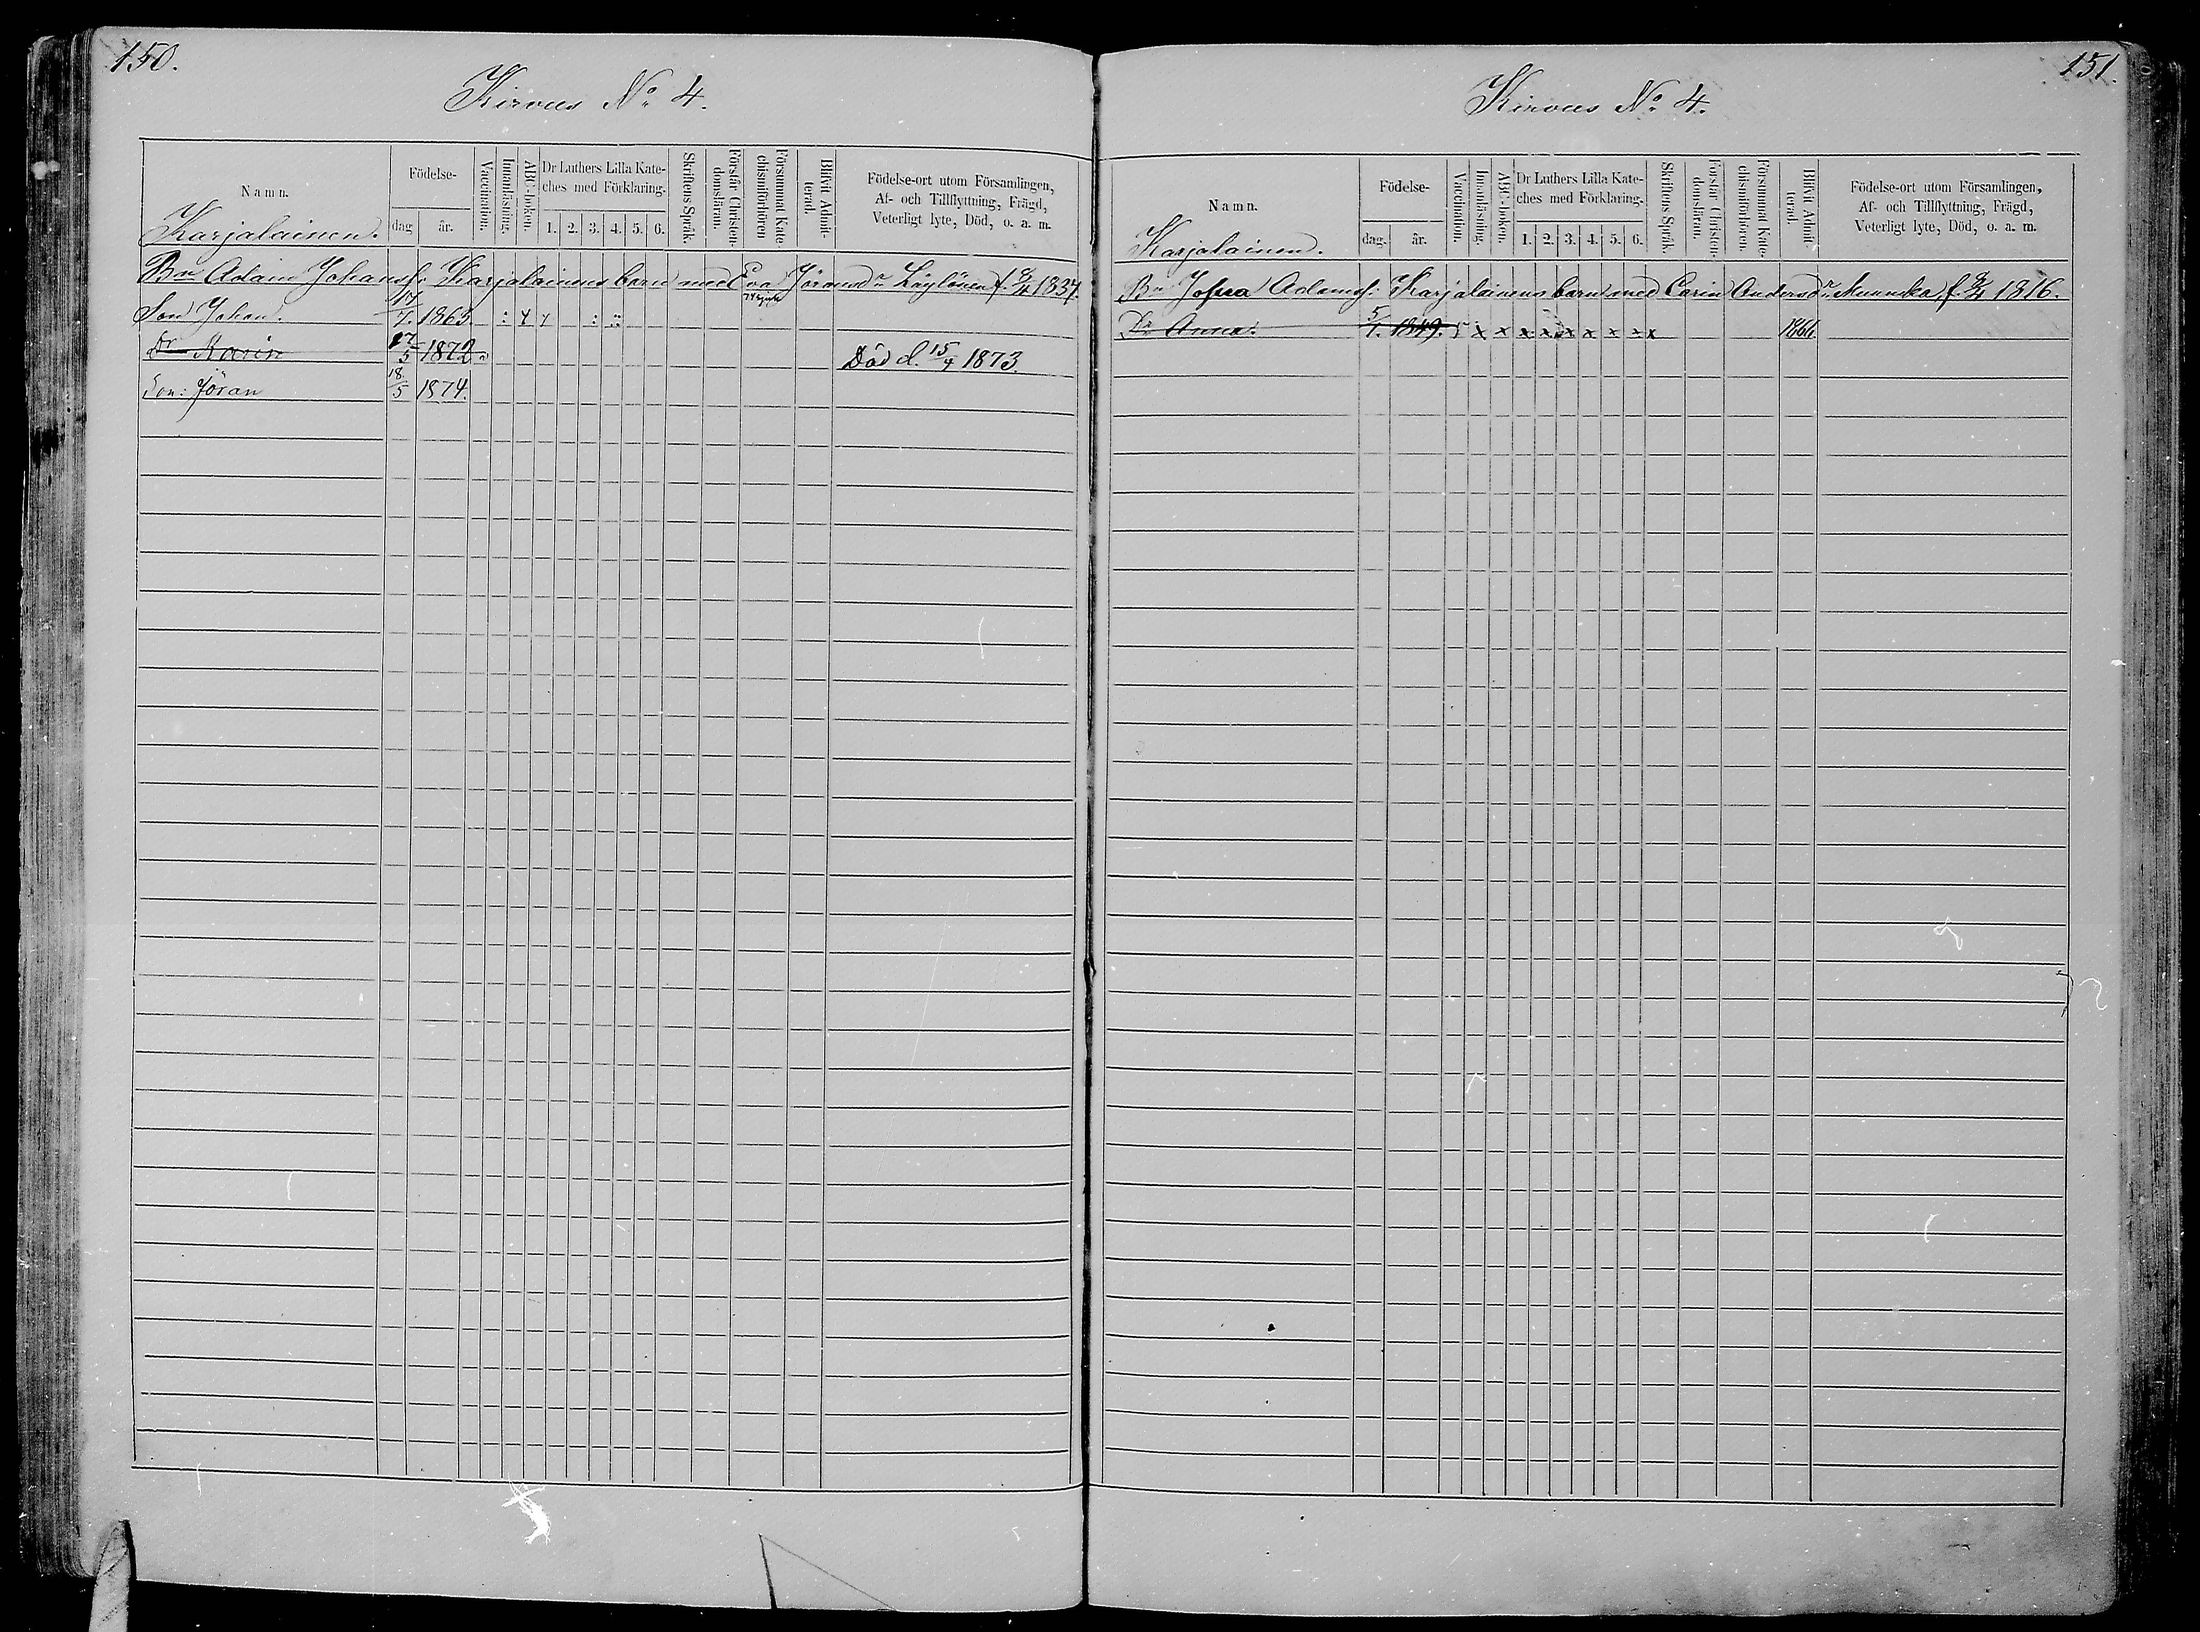 150.
Kirvus No 4.
Namn.
Födelse-
dag
år.
Vaccination.
Innanläsning.
ABC-boken.
Dr Luthers Lilla Kate-
ches med Förklaring.
1. 2. 3. 4. 5. 6.
Skriftens Språk.
Förstår Christen-
domsläran.
Försummat Kate-
chismiförhören
Blifvit Admit-
terad.
Födelse-ort utom Församlingen,
Af- och Tillflyttning, Frägd,
Veterligt lyte, Död, o. a. m.
Karjalainen.
Bn Adam Johansf: Karjalainens barn med Eva Göransdr f. 8/4 1837.
Son Johan. 17/7. 1865.
Dr Karin 27/5 1872. Död d. 15/4 1873.
Son: Göran 18./5 1874.
151.
Kirvus No 4.
Namn.
Födelse-
dag.
år.
Vaccination.
Innanläsning.
ABC-boken.
Dr Luthers Lilla Kate-
ches med Förklaring.
1. 2. 3. 4. 5. 6.
Skriftens Språk.
Förstår Christen-
domsläran.
Försummat Kate-
chismiförhören.
Blifvit Admit-
terad.
Födelse-ort utom Församlingen,
Af- och Tillflyttning, Frägd,
Veterligt lyte, Död, o. a. m.
Karjalainen.
Bn Adamsf: Karjalainens barn med Carin Andersdr f. 8/4 1816.
Dr Anna. 5/1. 1849. x x x x x x x x x 1866